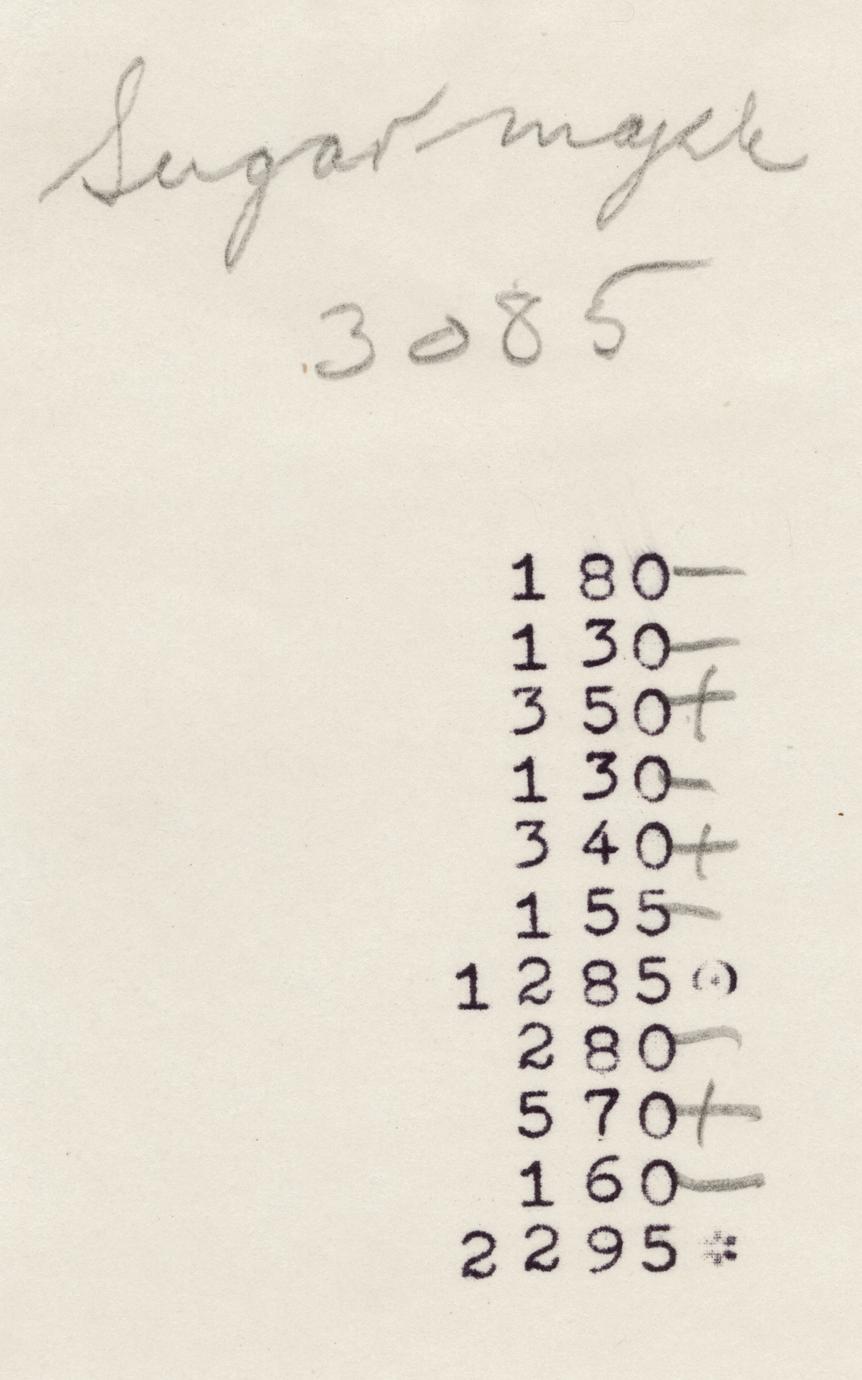 Sugar maple
3085
1 80 —
1 30 —
3 50 +
1 30 —
3 40 +
1 55 —
1 2 85 ⊙
2 80 —
5 70 +
1 60 —
2 2 95 *